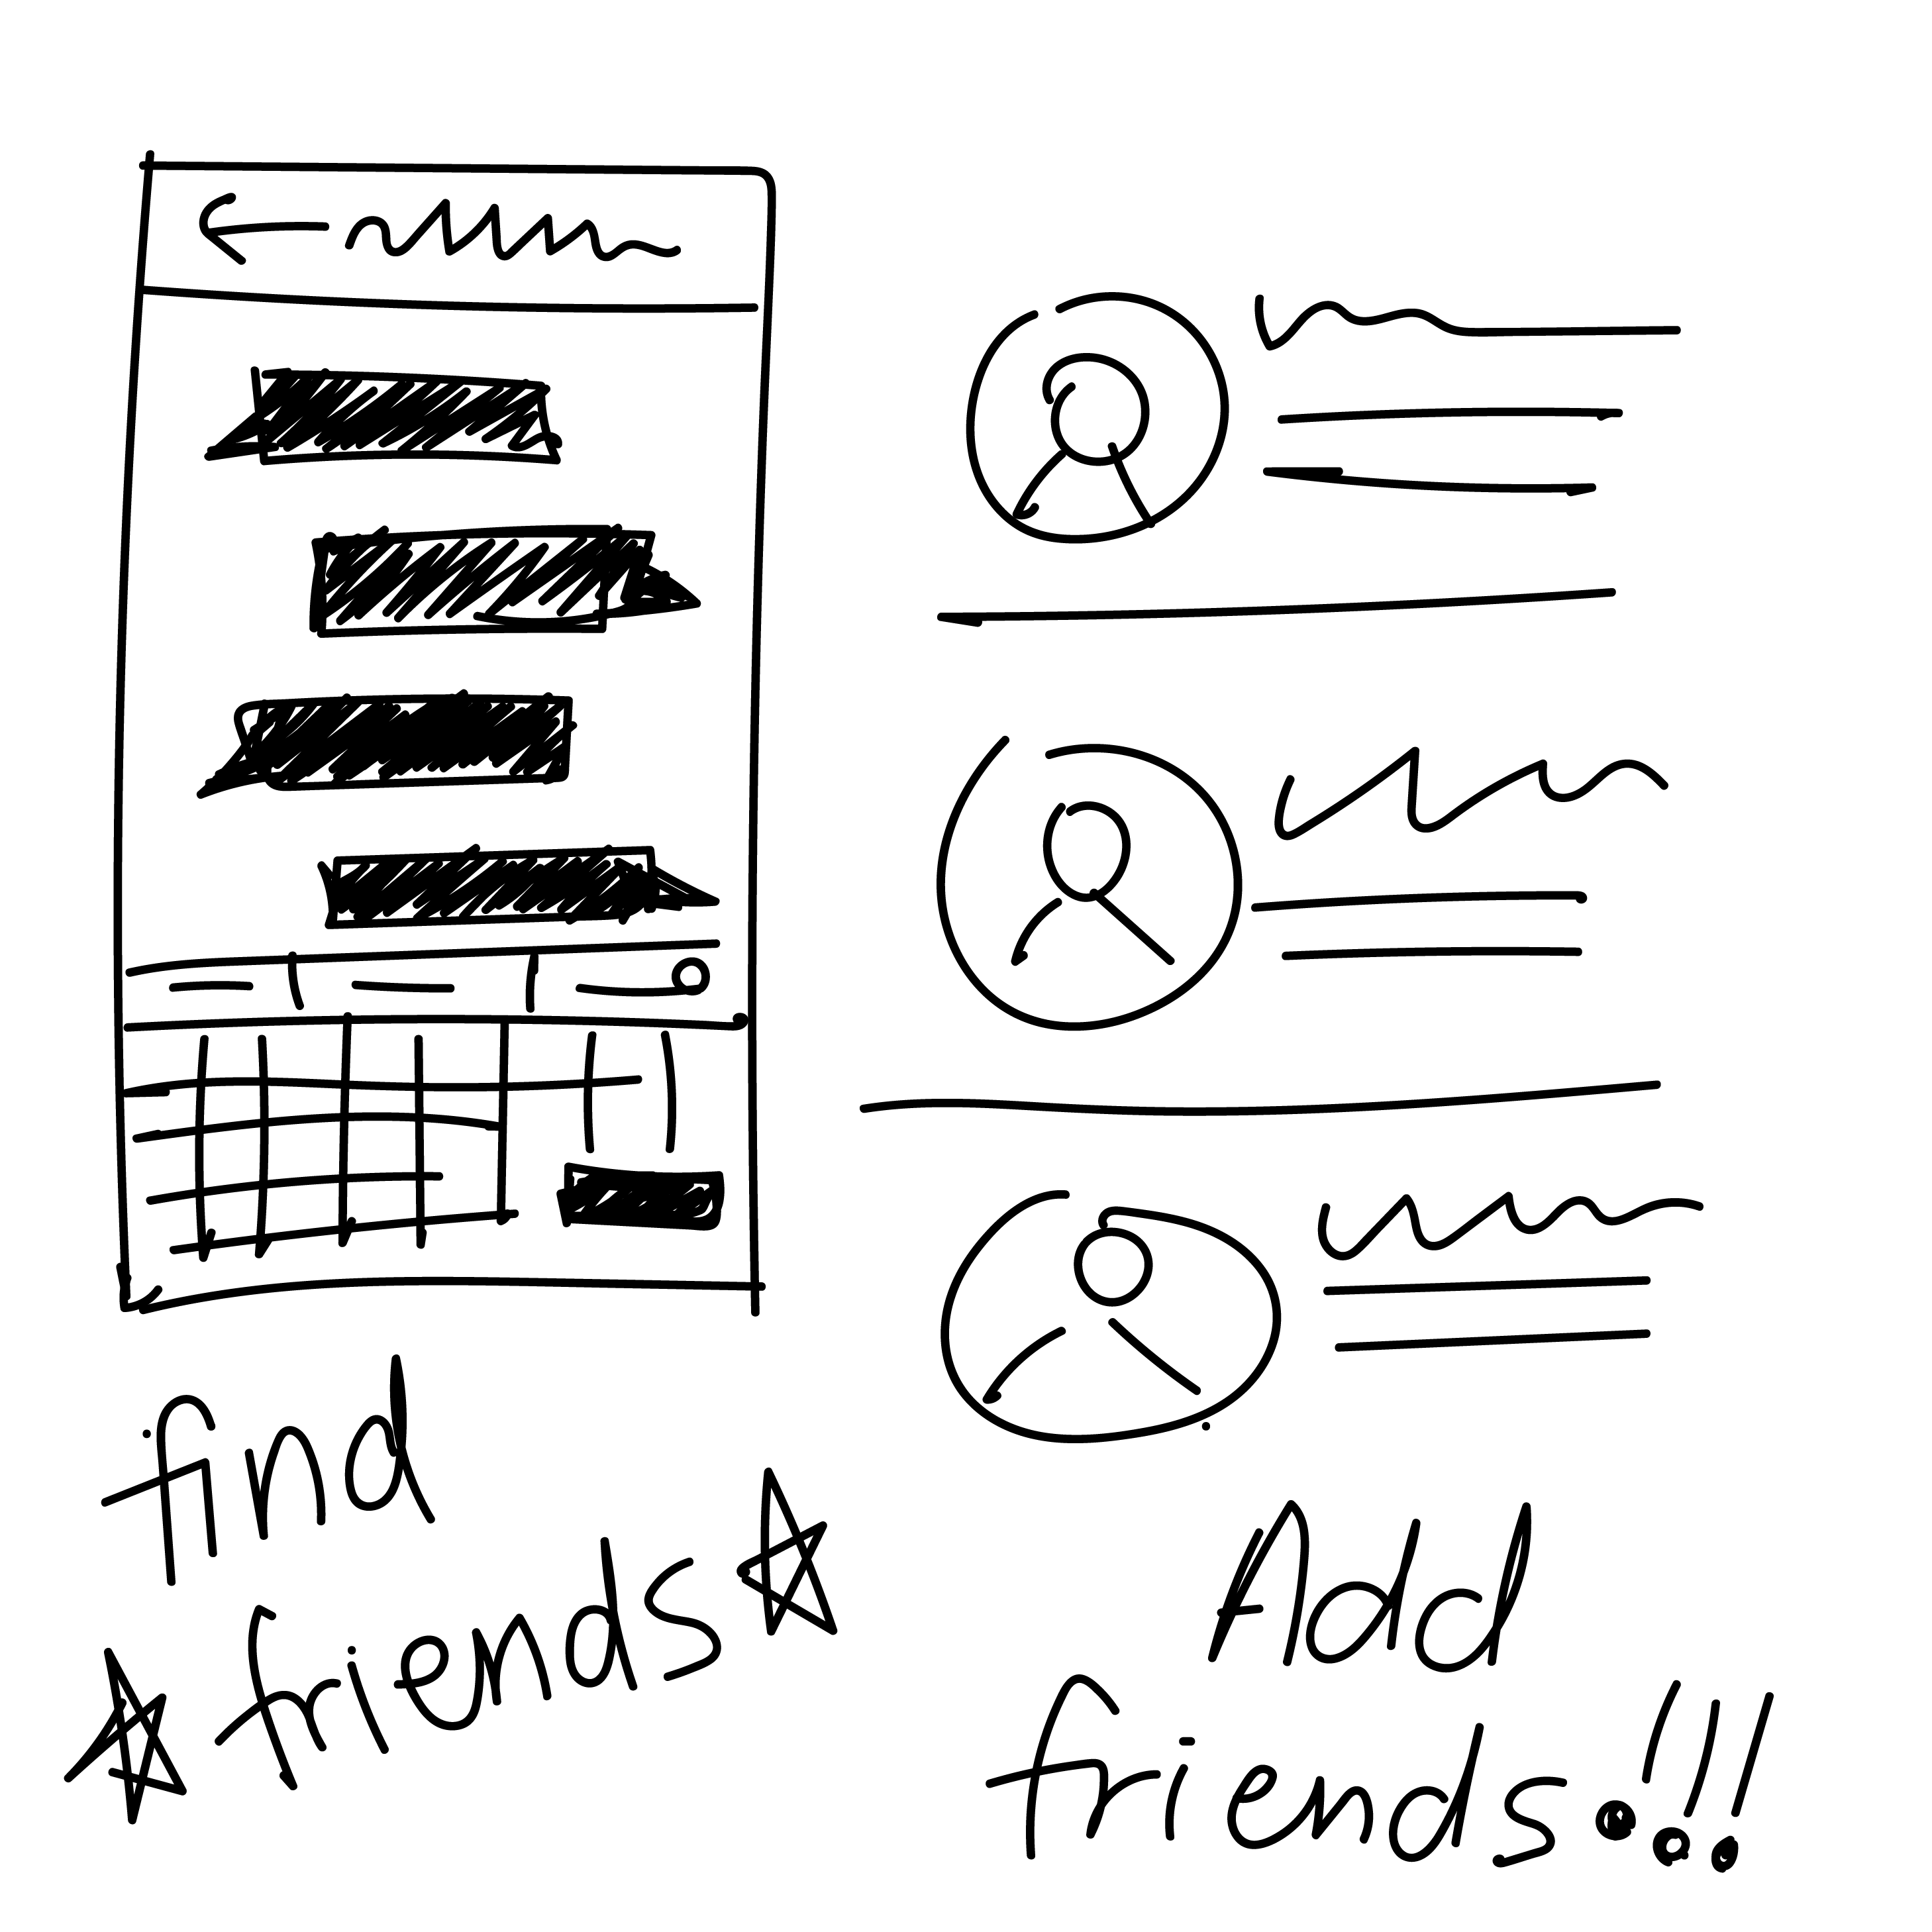 find
friends
Add
friends!!!